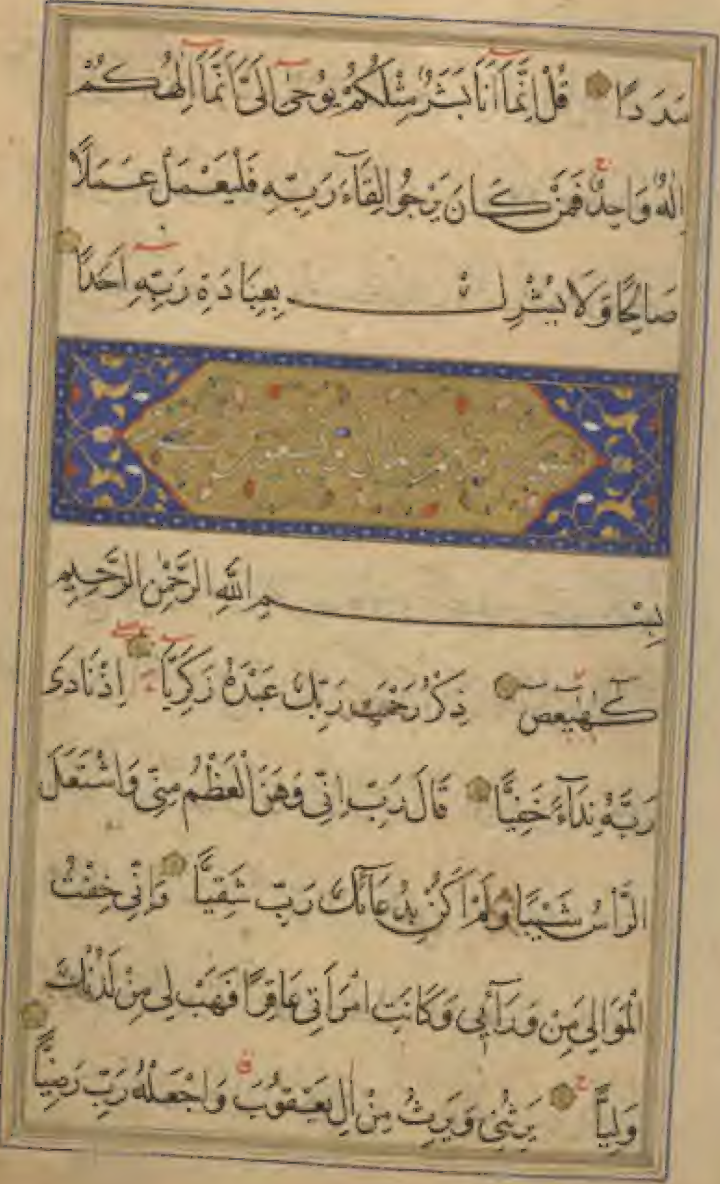 مَدَدًا قُلْ اِنَّمَٓا اَنَا بَشَرٌ مِثْلُكُمْ يُوحٰٓى اِلَىَّ اَنَّمَٓا اِلٰهُكُمْ
اِلٰهٌ وَاحِدٌ فَمَنْ كَانَ يَرْجُوا لِقَٓاءَ رَبِّهٖ فَلْيَعْمَلْ عَمَلًا
صَالِحًا وَلَا يُشْرِكْ بِعِبَادَةِ رَبِّهٖٓ اَحَدًا
سورة مريم ثمان وتسعون
بِسْمِ اللّٰهِ الرَّحْمٰنِ الرَّحِيمِ
كٓهٰيٰعٓصٓ ذِكْرُ رَحْمَتِ رَبِّكَ عَبْدَهُ زَكَرِيَّا اِذْ نَادٰى
رَبَّهُ نِدَٓاءً خَفِيًّا قَالَ رَبِّ اِنِّى وَهَنَ الْعَظْمُ مِنِّى وَاشْتَعَلَ
الرَّاْسُ شَيْبًا وَلَمْ اَكُنْ بِدُعَٓائِكَ رَبِّ شَقِيًّا وَاِنِّى خِفْتُ
الْمَوَالِىَ مِنْ وَرَٓائِى وَكَانَتِ امْرَاَتِى عَاقِرًا فَهَبْ لِى مِنْ لَدُنْكَ
وَلِيًّا يَرِثُنِى وَيَرِثُ مِنْ اٰلِ يَعْقُوبَ وَاجْعَلْهُ رَبِّ رَضِيًّا